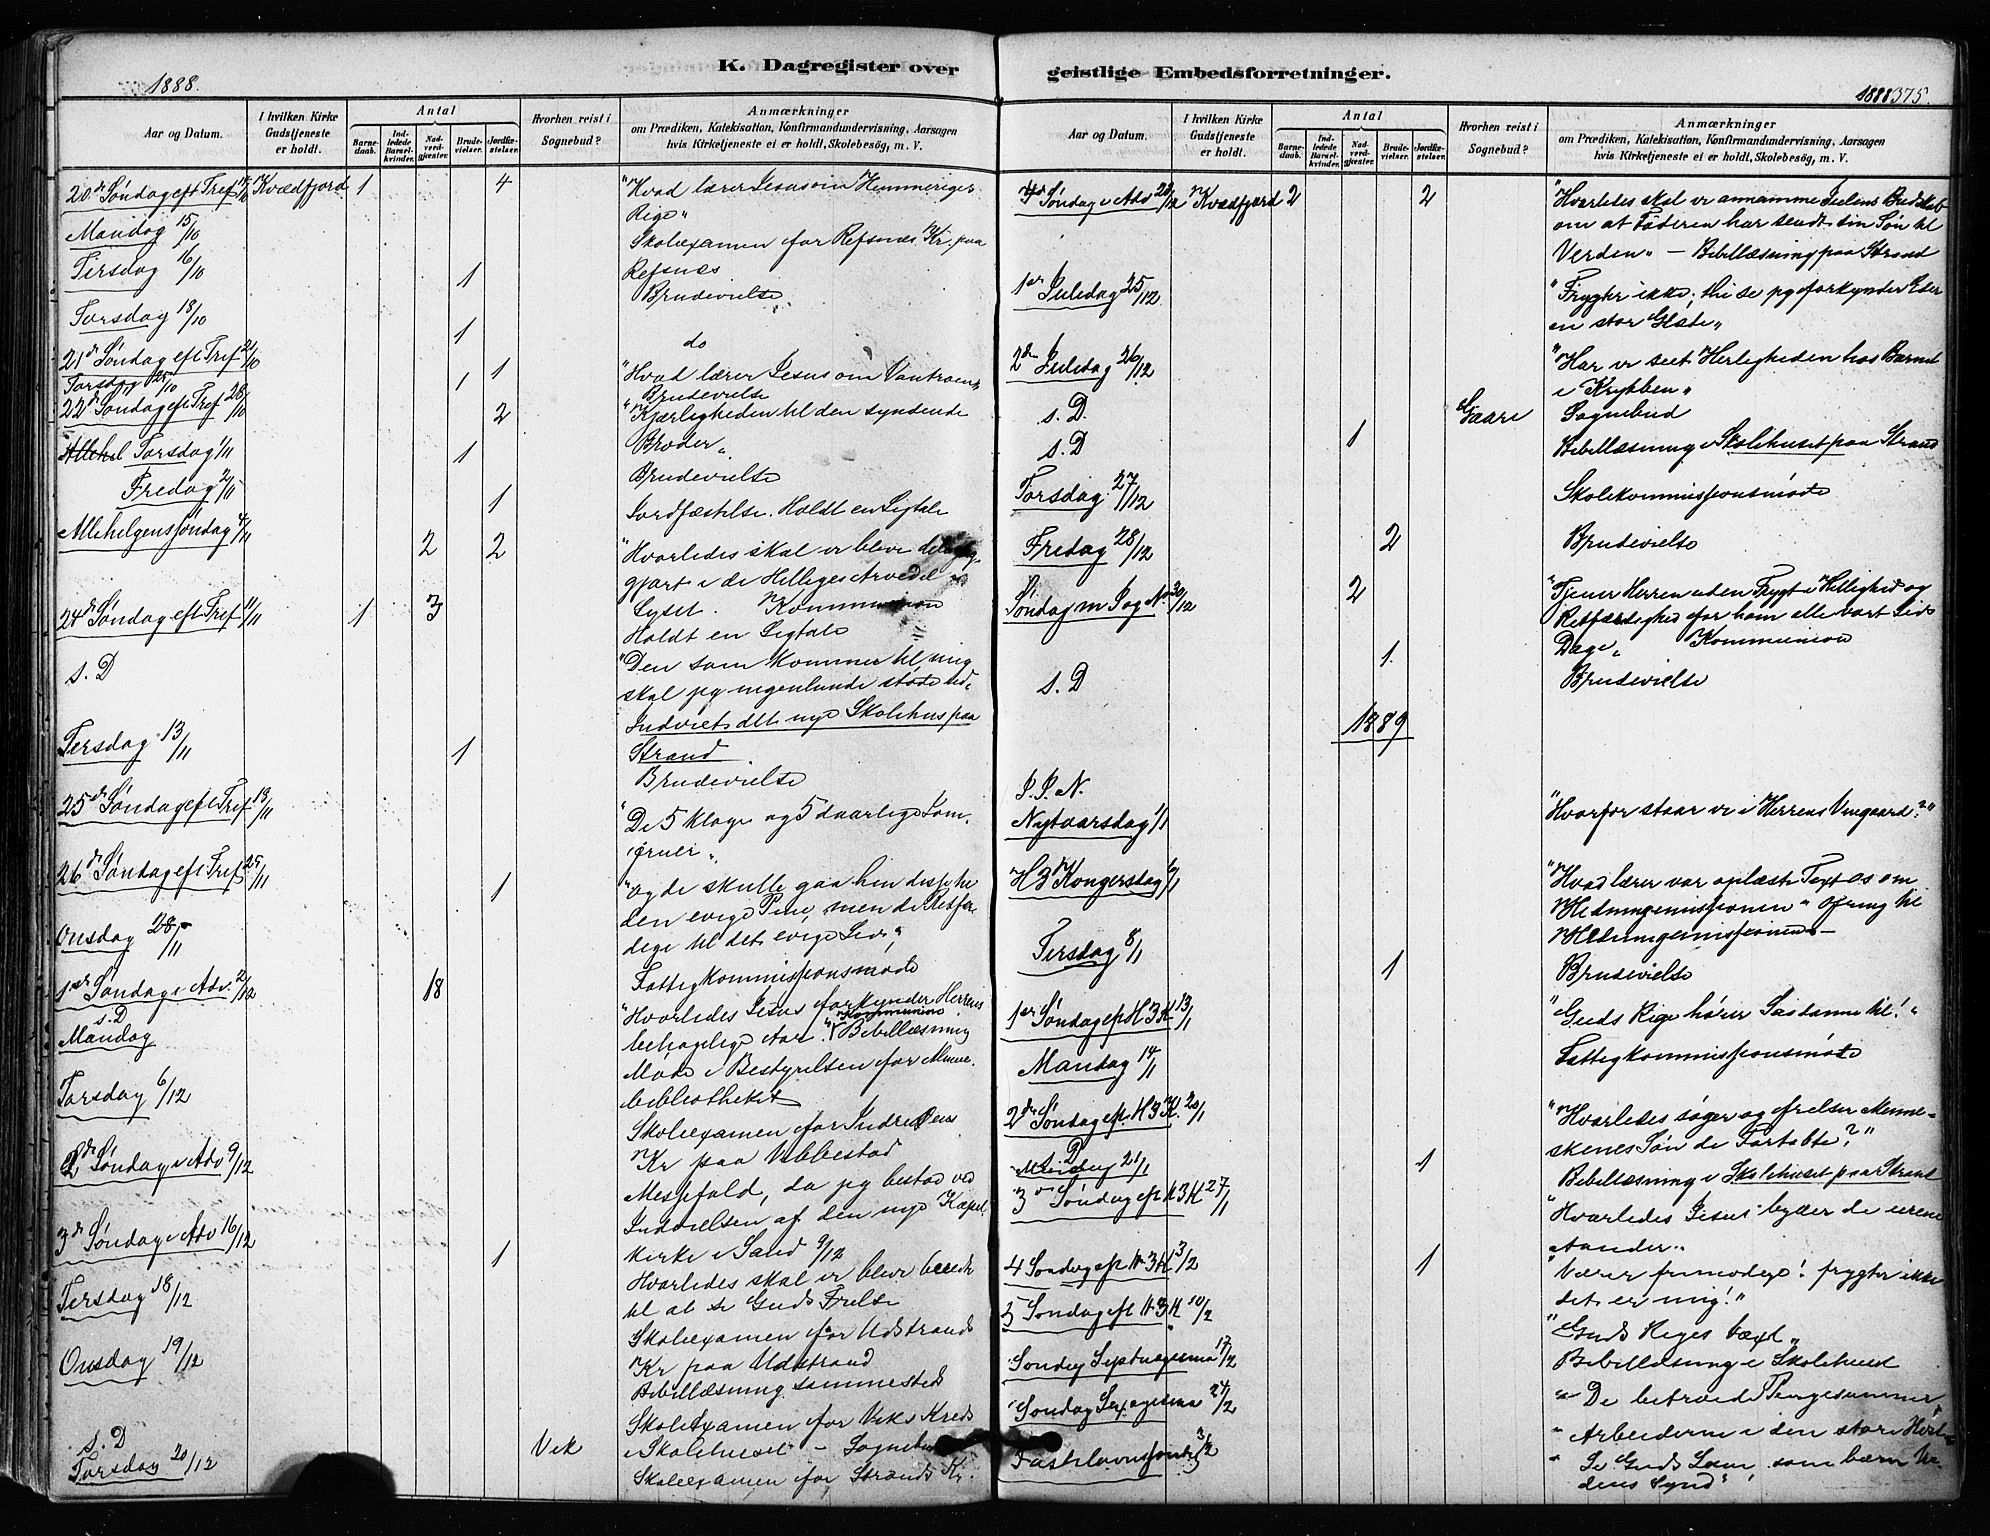 1888.
K. Dagregister over
Aar og Datum.
I hvilken Kirke Gudstjeneste er holdt.
Antal
Barnedaab.
Indledede Barselkvinder.
Nadverdgjester.
Brudevielser.
Jordfæstelser.
Hvorhen reist i Sognebud?
Anmærkninger
om Prædiken, Katekisation, Konfirmandundervisning, Aarsagen
hvis Kirketjeneste ei er holdt, Skolebesøg, m. V.
20de Søndag eft Tref 14/10 Kvædfjord 1 4 "Hvad lærer Jesus om Himmeriges
Rige"
Mandag 15/10 Skoleexamen for Refsnæs Kr. paa
Refsnæs
Tirsdag 16/10 1 Brudevielse
Torsdag 18/10 1 do
21de Søndag eft Tref 21/10 1 "Hvad lærer Jesus om Vantroen"
Torsdag 25/10 1 Brudevielse
22de Søndag eft Tref 28/10 2 "Kjærligheden til den syndende
Broder"
Torsdag 1/11 1 Brudevielse
Fredag 2/11 1 Jordfæstelse. Holdt en Ligtale
Allehelgenssøndag 4/11 2 2 "Hvorledes skal vi blive
gjort i de Helliges Arvedel i
Lyset. Kommunion
Holdt en Ligtale
24de Søndag eft Tref 11/11 1 3 "Den som kommer til mig
skal jeg ingenlunde støde ud"
s. D Indviet det nye Skolehus paa
Strand
Tirsdag 13/11 1 Brudevielse
25de Søndag eft Tref "De 5 kloge og 5 daarlige Jom-
fruer"
26de Søndag eft Tref 25/11 1 "og de skulle gaa hen disse til
den evige Pine, men de Retfær-
dige til det evige Liv"
Onsdag 28/11 Fattigkommissionsmøde
1ste Søndag i Adv. 2/12 18 "Hvorledes Jesus forkynder Herrens
behagelige Aar." Kommunion
s. D Bibellæsning
Mandag Møde i Bestyrelsen for Almue-
bibliotheket
Torsdag 6/12 Skoleexamen for
Kr paa Vebbestad
2de Søndag i Adv 9/12 Messefald, da jeg bestod ved
Indvielsen af den nye Kapel-
kirke i Sand 9/12
3de Søndag i Adv 16/12 1 Hvorledes skal vi blive beredt
til at se Guds Frelse
Tirsdag 18/12 Skoleexamen for Udstrands
Kr paa Udstrand
Bibellæsning sammesteds
Onsdag 19/12 SkoleExamen for Viks Kreds
s. D Vik i Skolehuset – Sognebud
Torsdag 20/12 Skoleexamen for Strands Kr.
geistlige Embedsforretninger.
1888 375.
Aar og Datum.
I hvilken Kirke Gudstjeneste er holdt.
Antal
Barnedaab.
Indledede Barselkvinder.
Nadverdgjester.
Brudevielser.
Jordfæstelser.
Hvorhen reist i Sognebud?
Anmærkninger
om Prædiken, Katekisation, Konfirmandundervisning, Aarsagen
hvis Kirketjeneste ei er holdt, Skolebesøg, m. V.
4de Søndag i Adv 23/12 Kvædfjord 2 2 "Hvorledes skal vi annamme Julens Budskab
om at Faderen har sendt sin Søn til
Verden" – Bibellæsning paa Strand
1ste Juledag 25/12 "Frygter ikke; thi se jeg forkynder Eder
en stor Glæde"
2den Juledag 26/12 "Har vi seet Herligheden hos Barnet
i Krybben"
s. D. Gaare Sognebud
s. D 1 Bibellæsning i Skolehuset paa Strand
Torsdag 27/12 Skolekommissionsmøde
Fredag 28/12 2 Brudevielse
Søndag m Jog N. 30/12 2 "Tjener Herren uden Frygt i Hellighed og
Retfærdighed for ham alle vort Livs
Dage" Kommunion
s. D 1. Brudevielse
1889
I. J. N.
Nytaarsdag 1/1 "Hvorfor staar vi i Herrens Vingaard?"
H 3 Kongersdag 6/1 "Hvad lærer vor oplæste Text os om
Hedningemissionen" Ofring til
Hedningemissionen –
Tirsdag 8/1 1 Brudevielse
1ste Søndag ef H 3 K 13/1 "Guds Rige hører Saadanne til!"
Mandag 14/1 Fattigkommissionsmøde
2den Søndag ef. H 3 K. 20/1 "Hvorledes søger og frelser Menne-
skenes Søn de Fortabte?"
s. D
Mandag 21/1 1 Bibellæsning i Skolehuset paa Strand
3de Søndag ef H 3 K 27/1 "Hvorledes Jesus byder de urene
Aander"
4 Søndag ef H 3 K 3/2 1 "Værer frimodige! frygter ikke
det er mig!"
5 Søndag eft H 3 K 10/2 "Guds Riges Væxt"
Bibellæsning i Skolehuset
Søndag Septuagesima 17/2 "De betroede Pengesummer
Søndag Sexagesima 24/2 "Arbeiderne i den store Høst"
Fastelavnssøndag 3/3 "Se Guds Lam, som bærer Ver-
dens Synd"